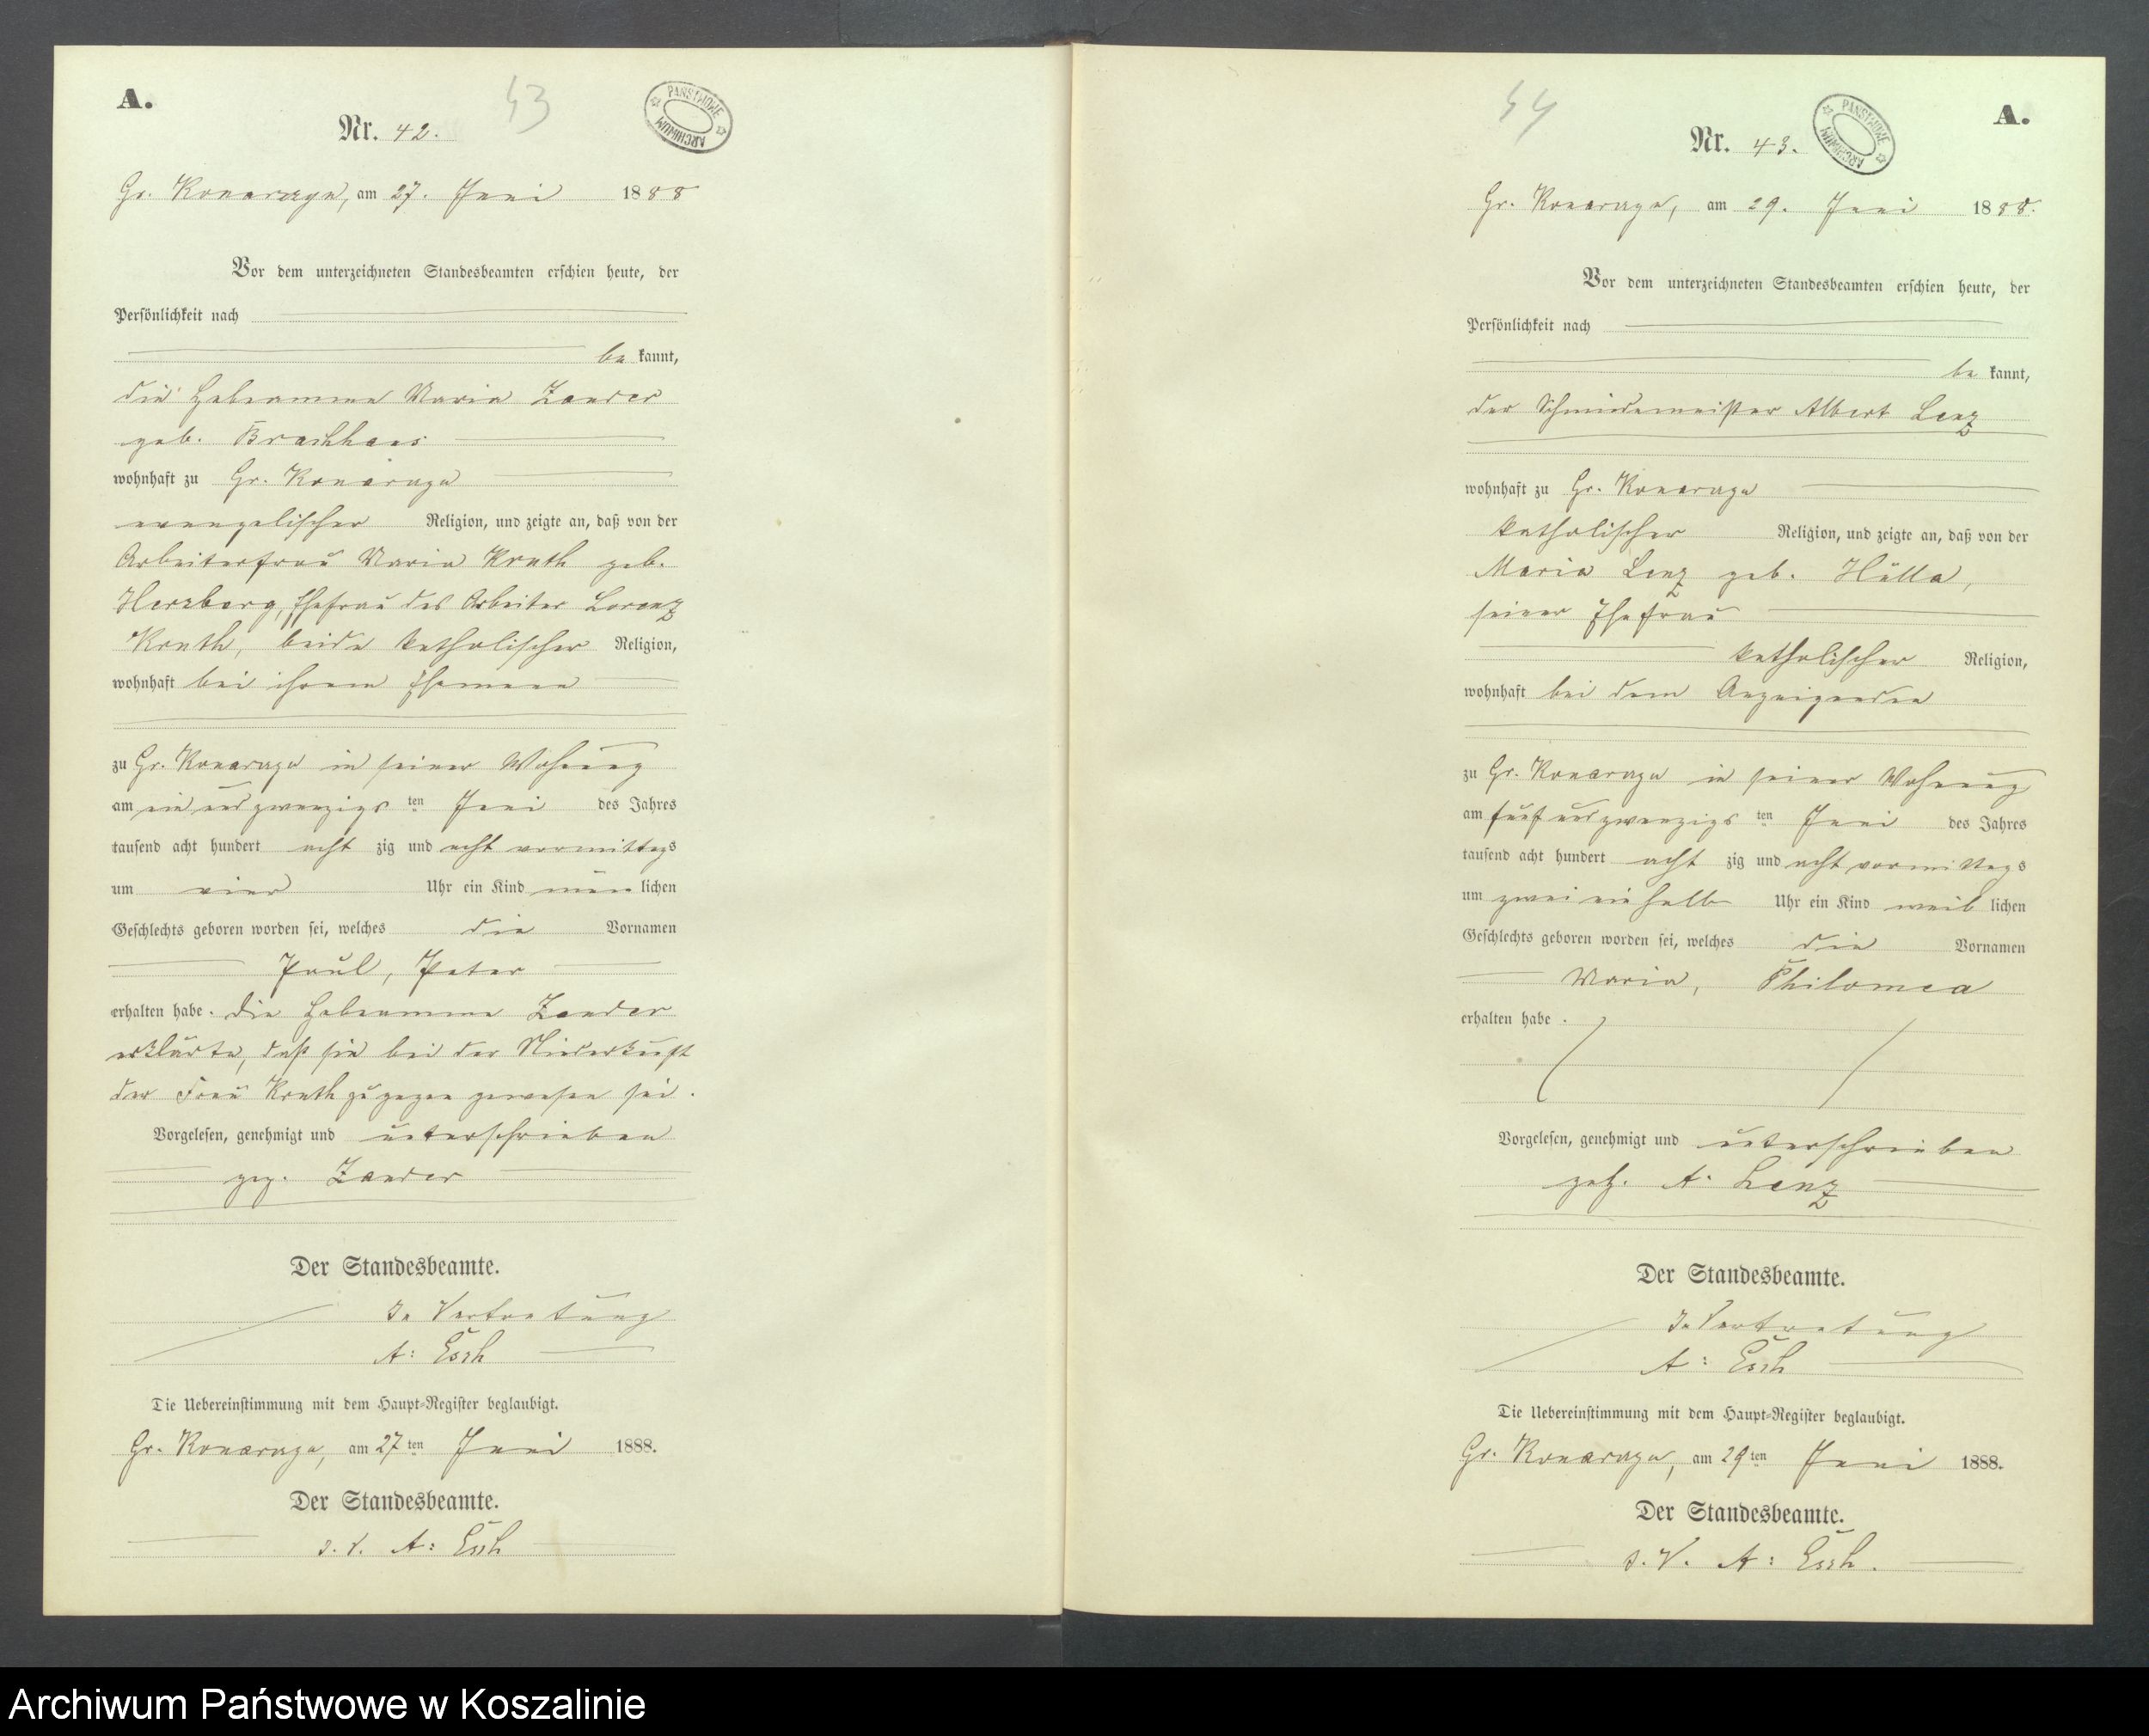 A.
43
PAŃSTWOWE ARCHIWUM
Nr. 42.
Gr. Konarzyn, am 27. Juni 1888
Vor dem unterzeichneten Standesbeamten erschien heute, der
Persönlichkeit nach
be kannt,
die Hebeamme Maria Zander
geb.
wohnhaft zu Gr. Konarzyn
evangelischer Religion, und zeigte an, daß von der
Arbeiterfrau Maria Knuth geb.
Herzberg, Ehefrau des Arbeiter Lorenz
Knuth, beide katholischer Religion,
wohnhaft bei ihrem Ehemann
zu Gr. Konarzyn in seiner Wohnung
am ein und zwanzigs ten Juni des Jahres
tausend acht hundert acht zig und acht vormittags
um vier Uhr ein Kind män lichen
Geschlechts geboren worden sei, welches die Vornamen
Paul, Peter
erhalten habe. Die Hebeamme Zander
erklärte, daß sie bei der Niederkunft
der Frau Knuth zugegen gewesen sei.
Vorgelesen, genehmigt und unterschrieben
gez. Zander
Der Standesbeamte.
In Vertretung
A: Esch
Die Uebereinstimmung mit dem Haupt-Register beglaubigt.
Gr. Konarzyn, am 27 ten Juni 1888.
Der Standesbeamte.
I. V. A: Esch
44
A.
PAŃSTWOWE ARCHIWUM
Nr. 43.
Gr. Konarzyn, am 29. Juni 1888.
Vor dem unterzeichneten Standesbeamten erschien heute, der
Persönlichkeit nach
be kannt,
der Schmiedemeister Albert Lenz
wohnhaft zu Gr. Konarzyn
katholischer Religion, und zeigte an, daß von der
Maria Lenz geb. Hülla,
seiner Ehefrau
katholischer Religion,
wohnhaft bei dem Anzeigenden
zu Gr. Konarzyn in seiner Wohnung
am fünf und zwanzigs ten Juni des Jahres
tausend acht hundert acht zig und acht vormittags
um zwei ein halb Uhr ein Kind weib lichen
Geschlechts geboren worden sei, welches die Vornamen
Maria, Philomea
erhalten habe.
Vorgelesen, genehmigt und unterschrieben
gez. A. Lenz
Der Standesbeamte.
In Vertretung
A: Esch
Die Uebereinstimmung mit dem Haupt-Register beglaubigt.
Gr. Konarzyn, am 29 ten Juni 1888.
Der Standesbeamte.
I. V. A: Esch.
Archiwum Państwowe w Koszalinie